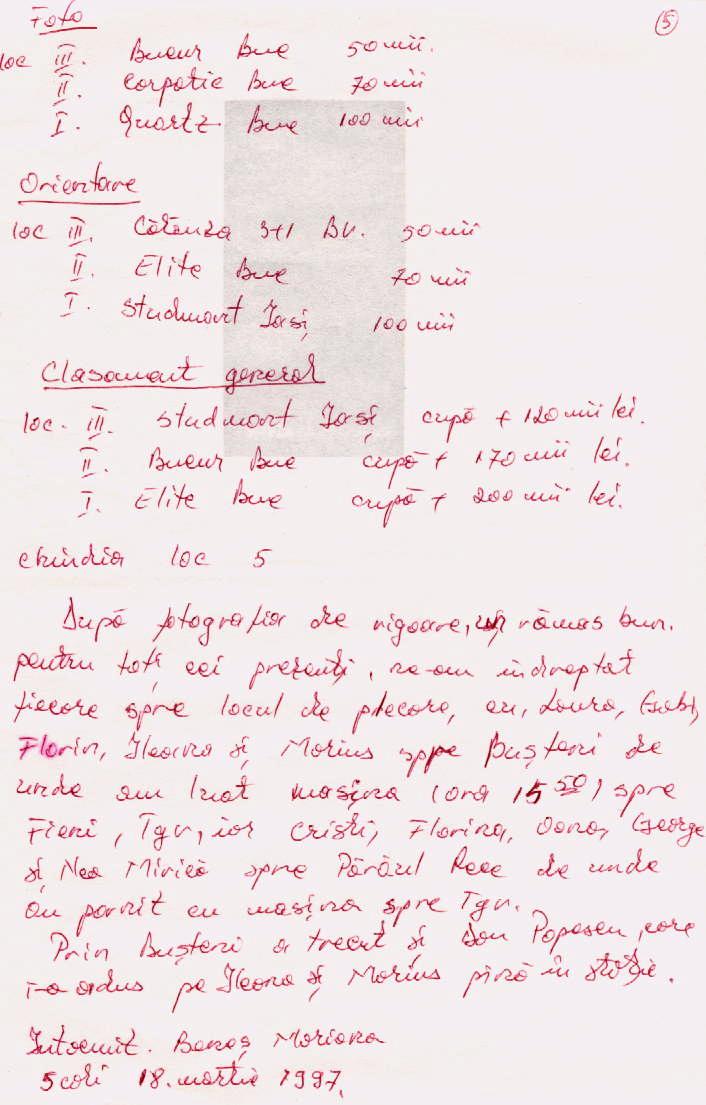 Foto
5
loc III. Bucur Buc 50 mii.
II. Carpatic Buc 70 mii
I. Quartz Buc 100 mii
Orientare
loc III. Cătanza 3+1 BV. 50 mii
II. Elite Buc 70 mii
I. Studmont Iași 100 mii
Clasament general
loc. III. Studmont Iași cupă + 120 mii lei.
II. Bucur Buc cupă + 170 mii lei.
I. Elite Buc cupă + 200 mii lei.
Chindia loc 5
După fotografia de rigoare, un rămas bun.
pentru toți cei prezenți, ne-am îndreptat
fiecare spre locul de plecare, eu, Laura, Gabi,
Florin, Ileana și Marius spre Bușteni de
unde am luat mașina (ora 15 50) spre
Fieni, Tgv, iar Cristi, Florina, Oana, George
și Nea Mirică spre Pârâul Rece de unde
au pornit cu mașina spre Tgv.
Prin Bușteni a trecut și Dan Popescu, care
i-a adus pe Ileana și Marius pînă în stație.
Întocmit. Banaș Mariana
5 coli 18. martie 1997.